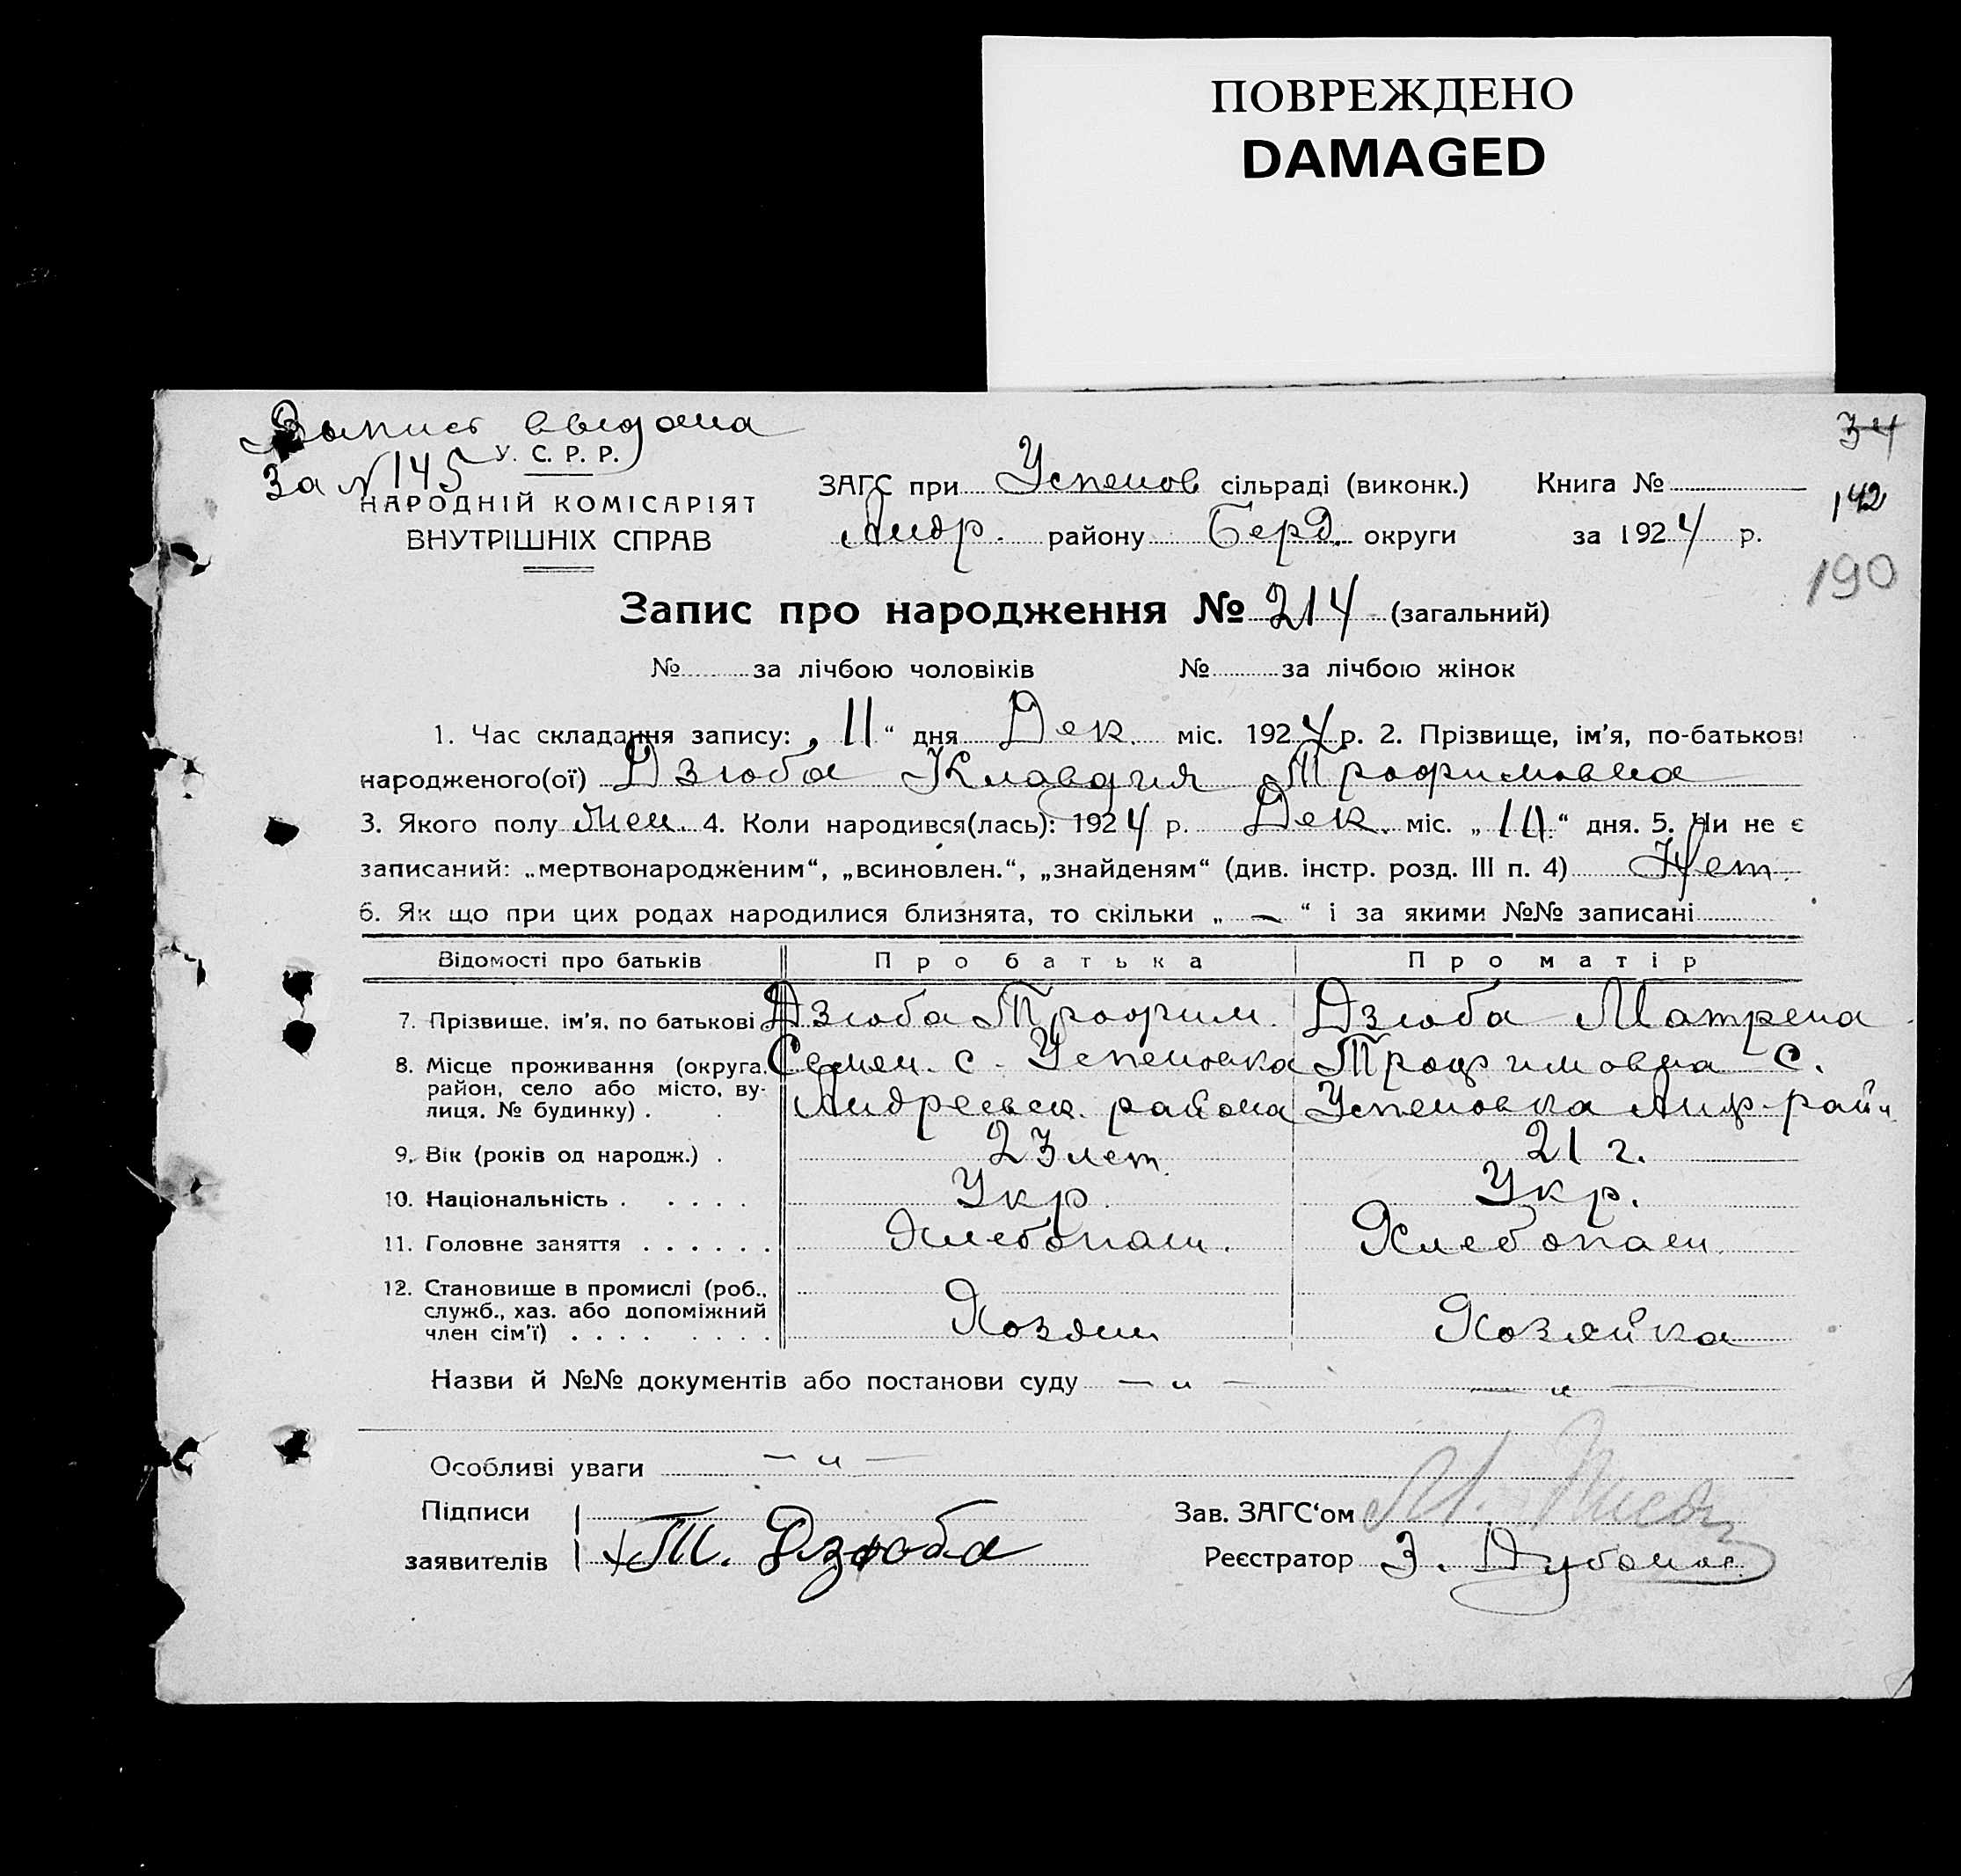 ПОВРЕЖДЕНО
DAMAGED
Выпись выдана
У. С. Р. Р.
За № 145
НАРОДНІЙ КОМІСАРІЯТ
ВНУТРІШНІХ СПРАВ
ЗАГС при Успенов сільраді (виконк.) Книга №
Андр. району Берд. округи за 1924 р.
34
142
190
Запис про народження № 214 (загальний)
№ за лічбою чоловіків № за лічбою жінок
1. Час складання запису: „11“ дня Дек. міс. 1924 р. 2. Прізвище, ім’я, по-батькові
народженого(ої) Дзюба Клавдия Трофимовна
3. Якого полу Жен. 4. Коли народився(лась): 1924 р. Дек. міс. „10“ дня. 5. Чи не є
записаний: „мертвонародженим“, „всиновлен.“, „знайденям“ (див. інстр. розд. III п. 4) Нет.
6. Як що при цих родах народилися близнята, то скільки „ — “ і за якими №№ записані
Відомості про батьків Про батька Про матір
7. Прізвище, ім’я, по батькові Дзюба Трофим. Дзюба Матрена
8. Місце проживання (округа, Семен. с. Успеновка Трофимовна с.
район, село або місто, ву-
лиця, № будинку) . . Андреевск. района Успеновка Андр. райн
9. Вік (років од народж.) . 23 лет. 21 г.
10. Національність . . . . . Укр. Укр.
11. Головне заняття . . . . . . Хлебопаш. Хлебопаш.
12. Становище в промислі (роб.,
служб., хаз. або допоміжний
член сім’ї) . . . . . . . . Хозяин Хозяйка
Назви й №№ документів або постанови суду — „ — — „ —
Особливі уваги — „ —
Підписи Зав. ЗАГС‘ом
заявителів Т. Дзюба Реєстратор З.